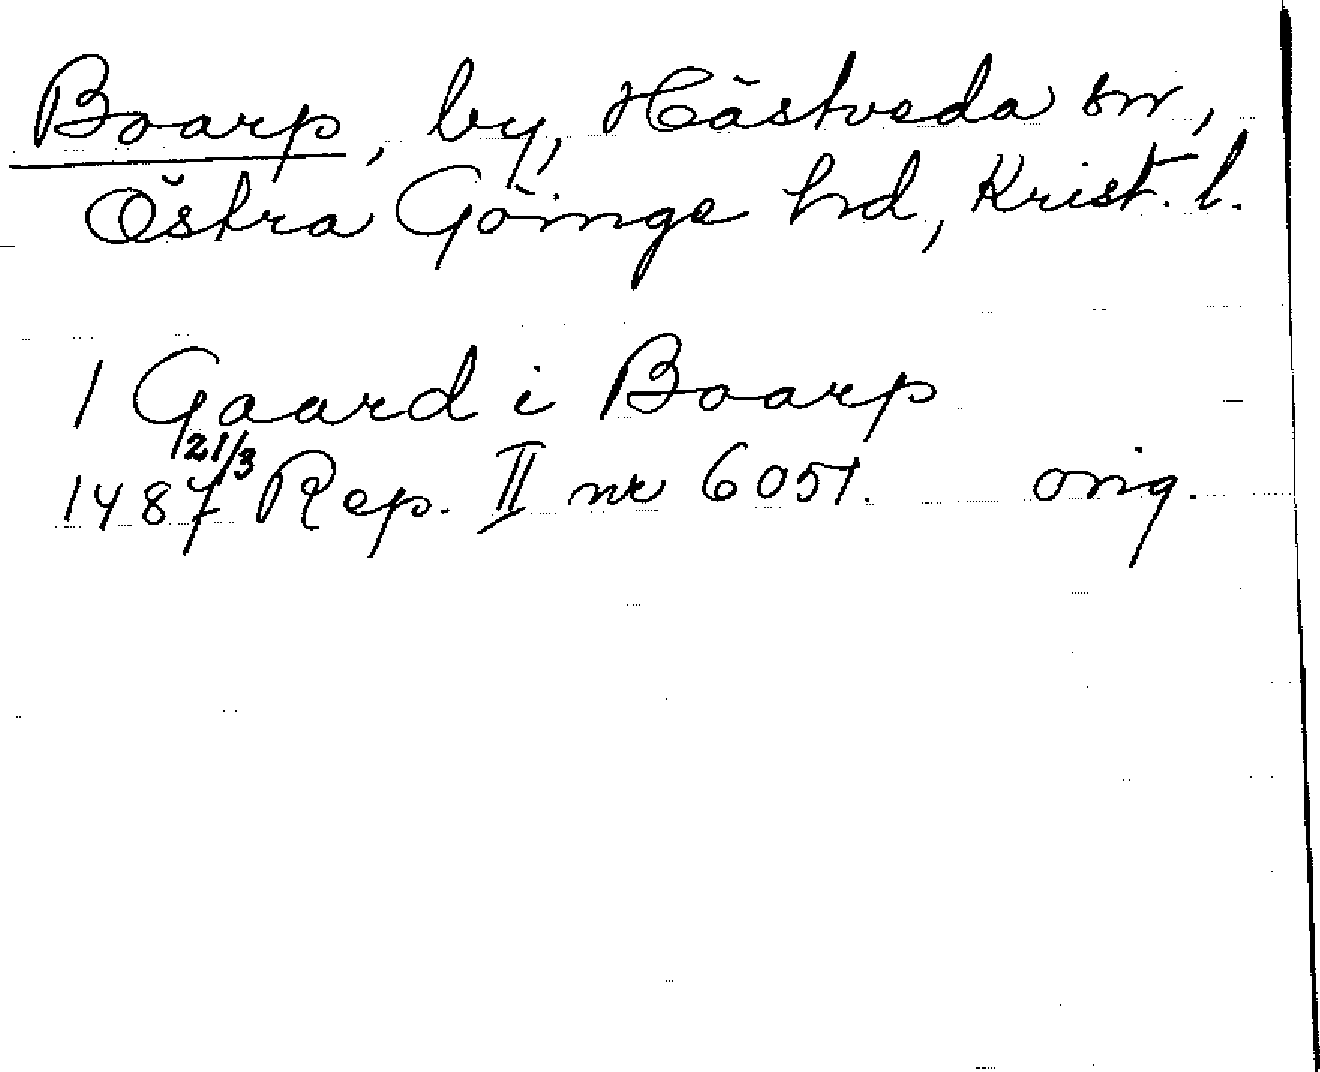 Boarp, by, Hästveda sn,
Östra Göinge hd, Krist. l.
1 Gaard i Boarp
1487 21/3 Rep. II nr 6051. orig.